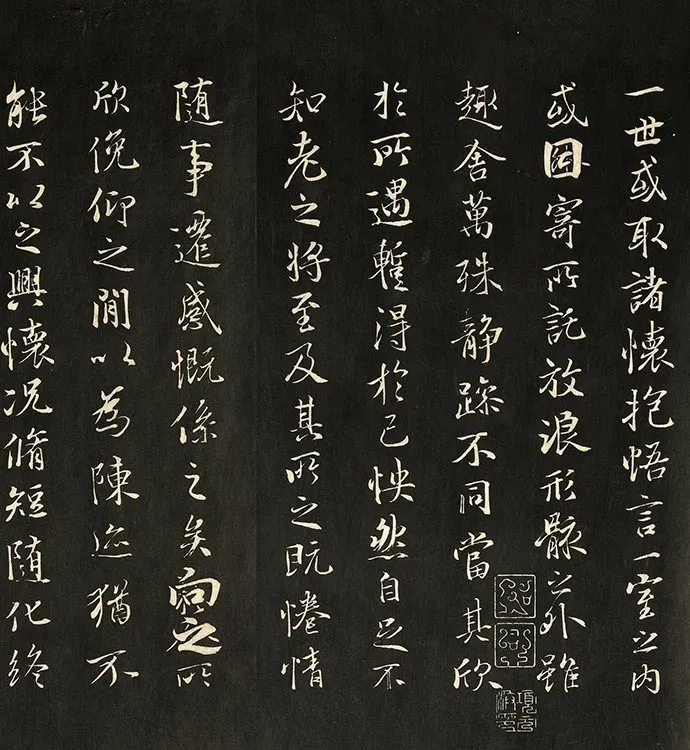 一世或取諸懷抱悟言一室之内
或因寄所託放浪形骸之外雖
趣舍萬殊静躁不同當其欣
於所遇暫得於己怏然自足不
知老之將至及其所之既惓情
随事遷感慨係之矣向之所
欣俛仰之閒以為陳迹猶不
能不以之興懷况脩短随化終